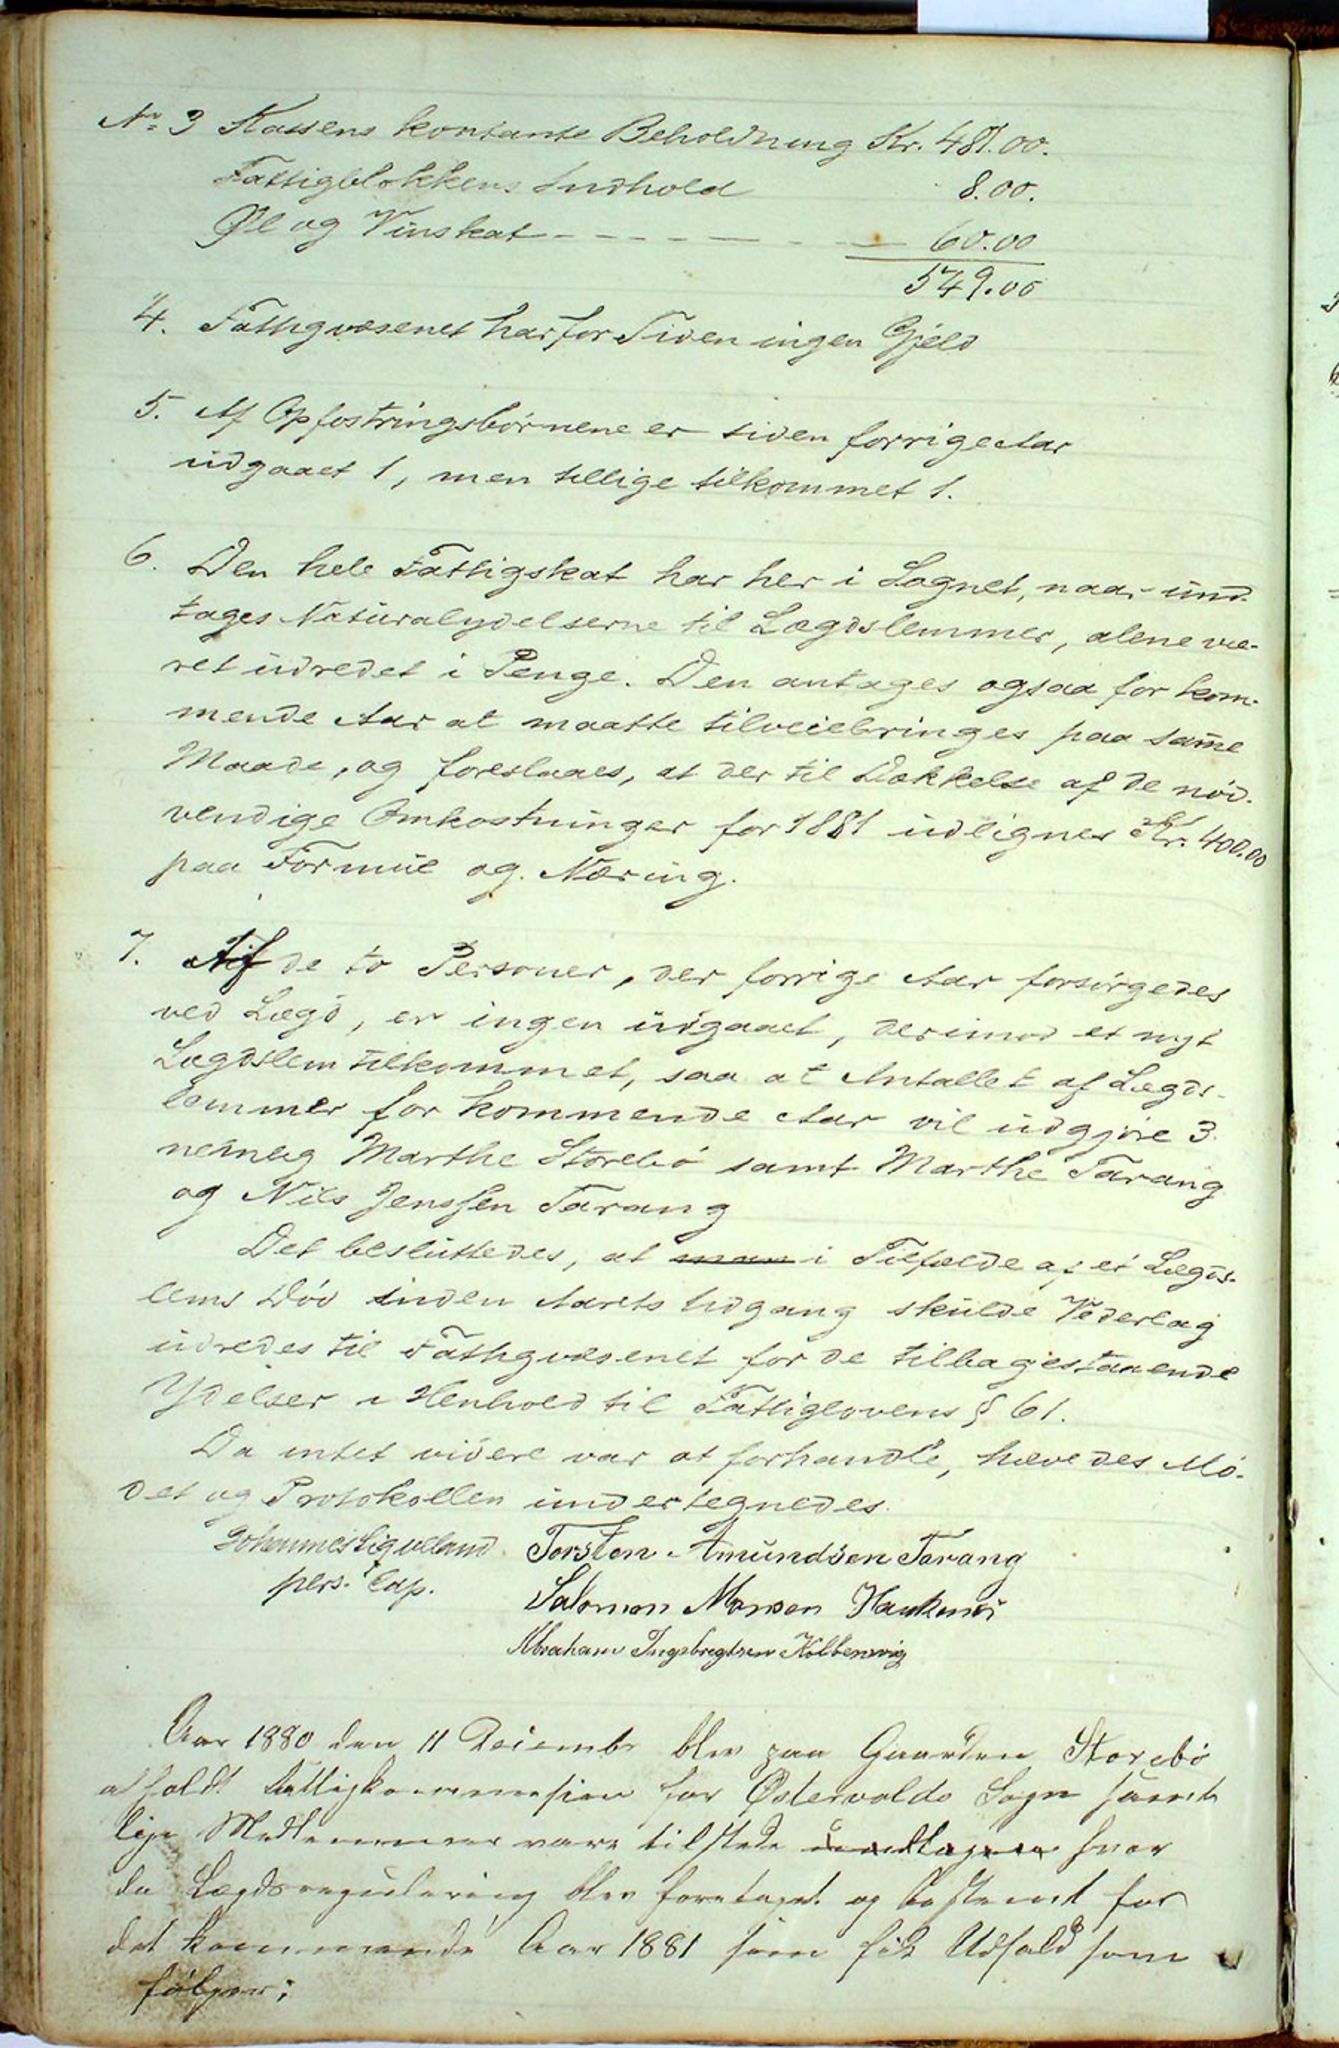 No 3 Kassens kontante Beholdning Kr. 481.00.
Fattigblokkens Indhold 8.00.
Øl og Vinskat - - - - - - 60.00
549.00
4. Fattigvæsenet har for Tiden ingen Gjeld
5. Af Opfostringsbørnene er siden forrige Aar
udgaaet 1, men tillige tilkommet 1.
6. Den hele Fattigskat har her i Sognet, naar und-
tages Naturalydelserne til Lægdslemmer, alene væ-
ret udredet i Penge. Den antages ogsaa for kom-
mende Aar at maatte tilveiebringes paa samme
Maade, og foreslaaes, at der til Dækkelse af de nød-
vendige Omkostninger for 1881 udlignes Kr. 400.00
paa Formue og Næring.
7. Af de to Personer, der forrige Aar forsørgedes
ved Lægd, er ingen udgaaet, derimod et nyt
Lægdslem tilkommet, saa at Antallet af Lægds-
lemmer for kommende Aar vil udgjøre 3.
nemlig Marthe Storebø samt Marthe Tarang
og Nils Jenssen Tarang
Det besluttedes, at man i Tilfælde af et Lægds-
lems Død inden Aarets Udgang skulde Vederlag
udredes til Fattigvæsenet for de tilbagestaaende
Ydelser i Henhold til Fattiglovens § 61.
Da intet videre var at forhandle, hævedes Mø-
det og Protokollen undertegnedes.
Johannes Sigveland Torsten Amundsen Tarang
pers. Cap. Salomon Monsen Haukenæs
Abraham Ingebregtsen Kolbensvig
Aar 1880 den 11 Decembr blev paa Gaarden Storebø
afholdt Fattigkommission for Østervolds Sogn samt
lige Medlemmer vare tilstede undtagen hvor
da Lægdsregulering blev foretaget og bestemt for
det kommende Aar 1881 som fik Udfald som
følger;